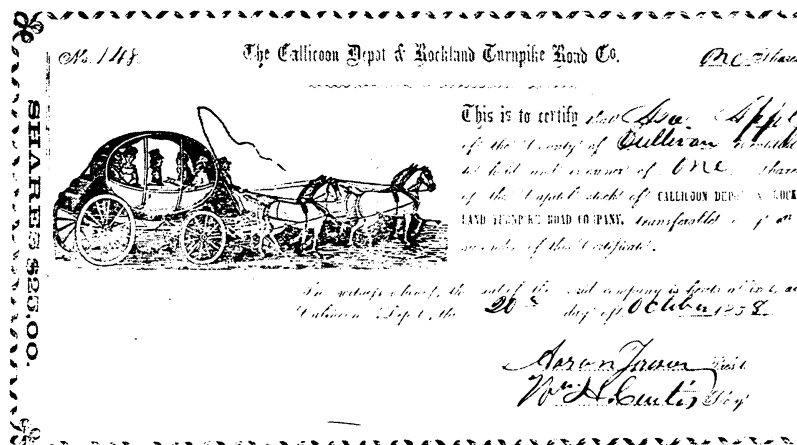 No. 148
The Callicoon Depot & Rockland Turnpike Road Co.
One Share
SHARES $25,00.
This is to certify that
of the County of Sullivan is entitled
to hold and is owner of One share
of the Capital stock of CALLICOON DEPOT & ROCK
LAND TURNPIKE ROAD COMPANY, transferable
surrender of this Certificate.
In witness whereof, the seal of the said company is hereto affixed, at
Callicoon Depot, the 20th day of October 1858.
Aaron Pres't
Wm H. Curtis Sec'y